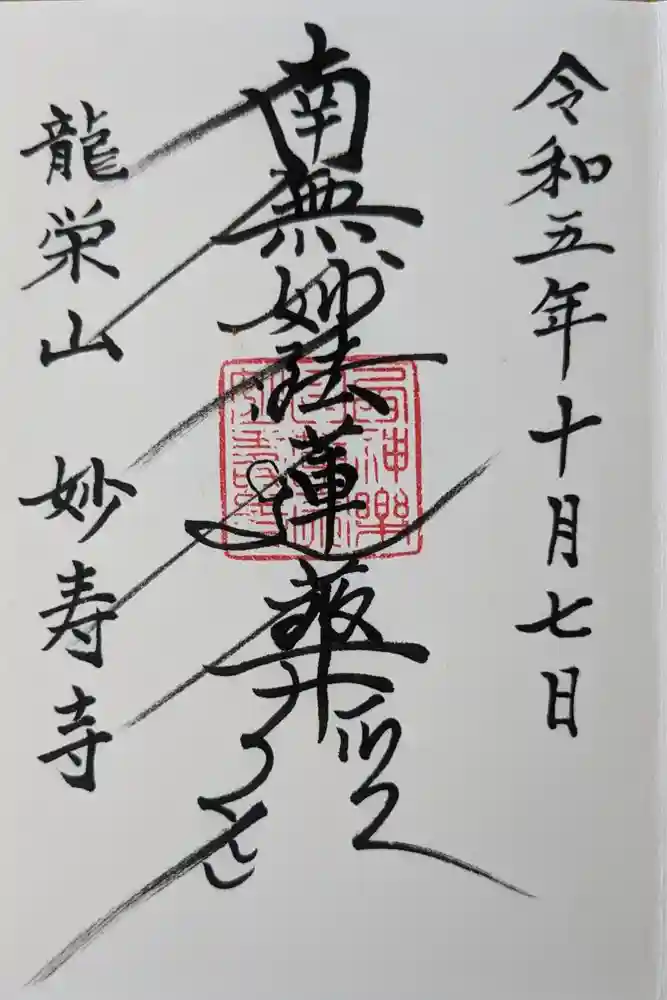 令和五年十月七日
南無妙法蓮華経
龍栄山 妙寿寺